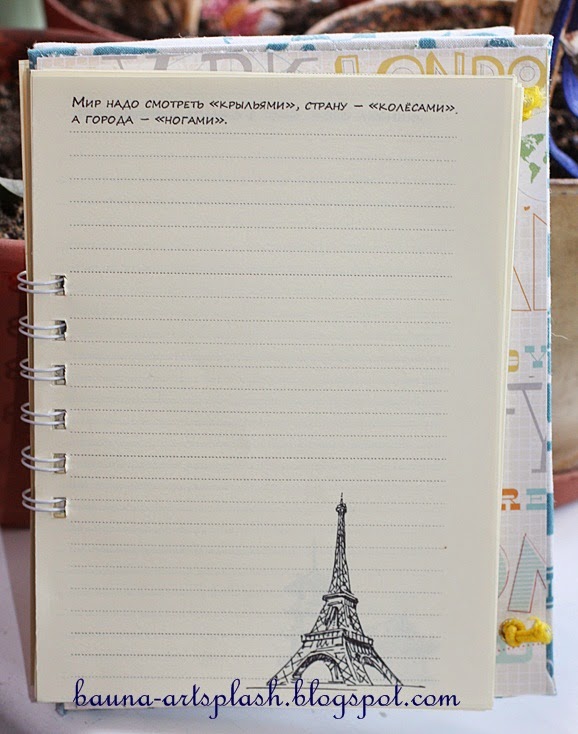 LONDO
Мир надо смотреть «крыльями», страну – «колёсами»,
а города – «ногами».
bauna-artsplash.blogspot.com